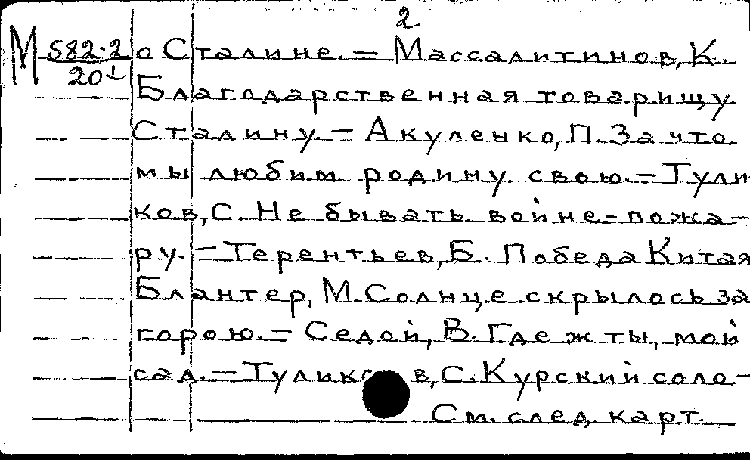 2
М 582·2 о Сталине. — Массалитинов, К.
20
Благодарственная товарищу
Сталину. — Акуленко, П. За что
мы любим родину свою. — Тули
ков, С. Не бывать войне-пожа-
ру. — Терентьев, Б. Победа Китая
Блантер, М. Солнце скрылось за
горою. — Седой, В. Где ж ты, мой
сад. — Туликов, С. Курский соло-
См. след. карт.